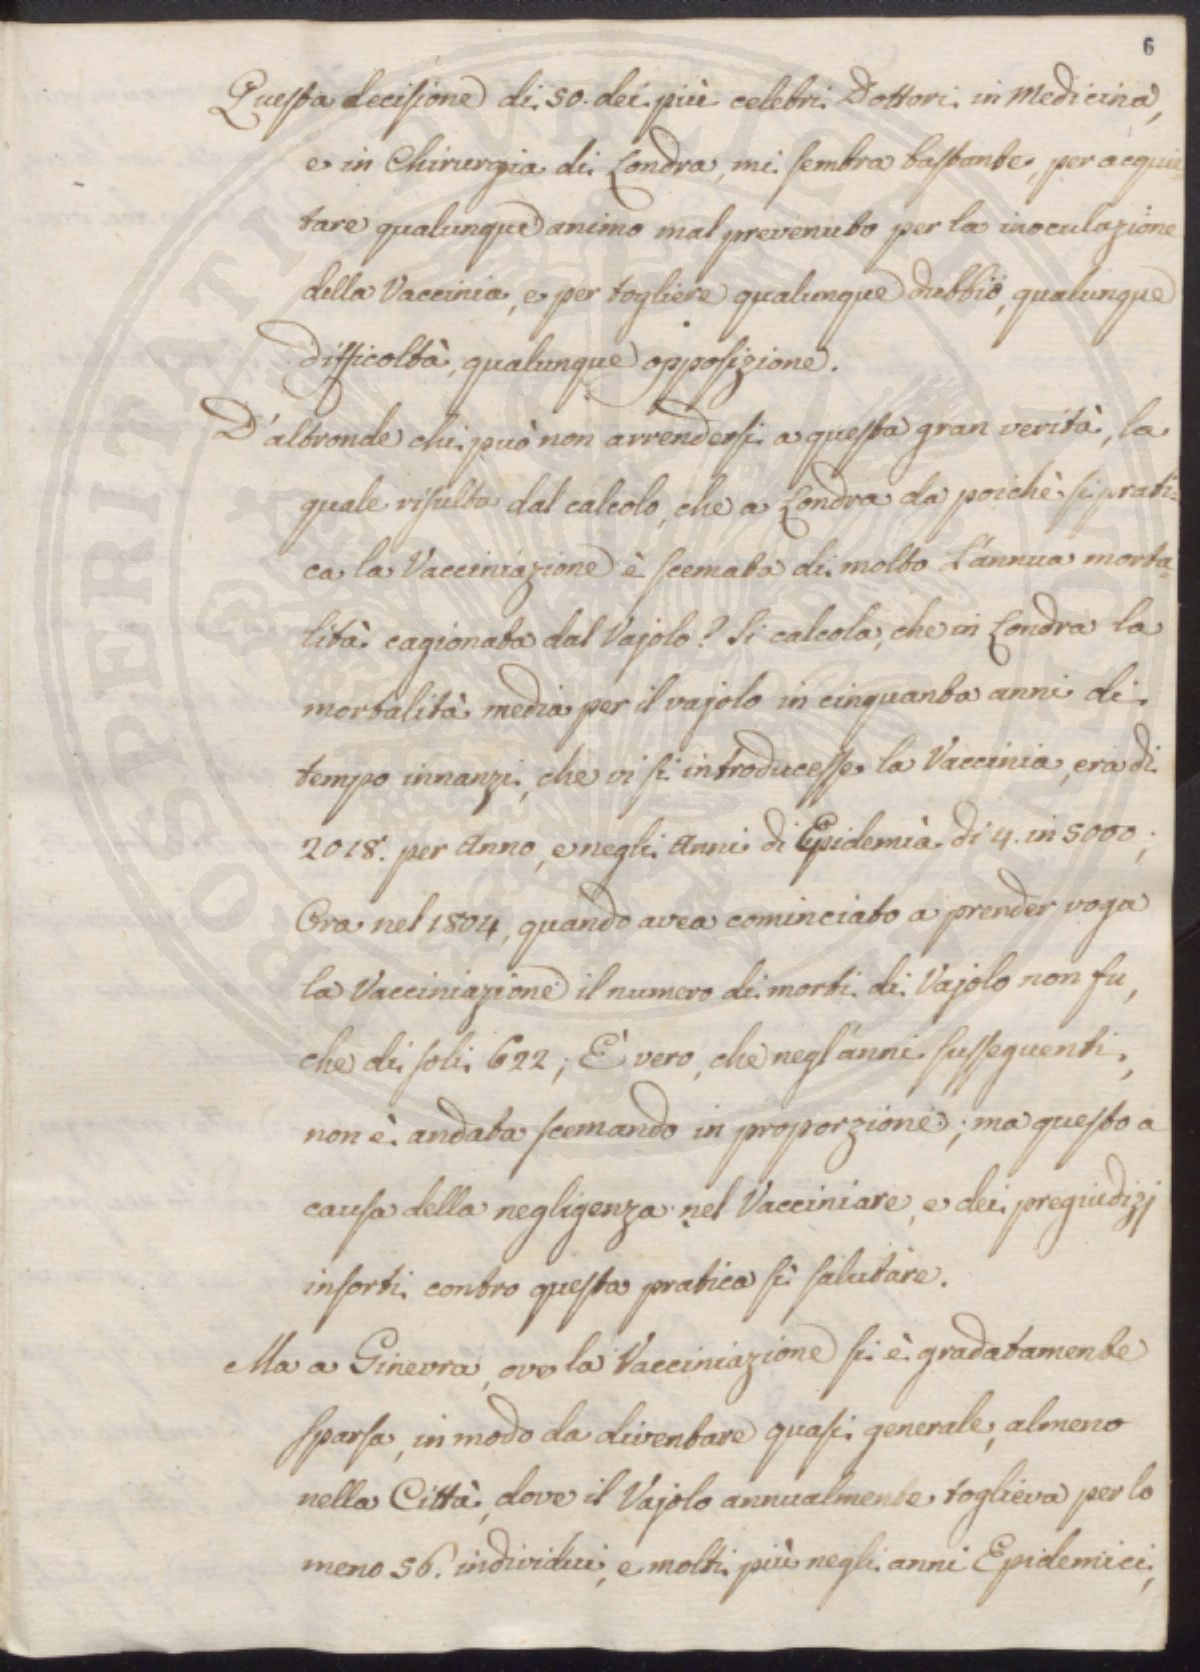 6
Questa decisione di 50. dei più celebri Dottori in Medicina,
e in Chirurgia di Londra, mi sembra bastante, per acquie-
tare qualunque animo mal prevenuto per la inoculazione
della Vaccinia, e per togliere qualunque dubbio, qualunque
difficoltà, qualunque opposizione.
D'altronde chi può non arrendersi a questa gran verità, la
quale risulta dal calcolo, che a Londra da poichè si prati-
ca la Vacciniazione è scemata di molto L'annua morta-
lità cagionata dal Vajolo? Si calcola, che in Londra la
mortalità media per il vajolo in cinquanta anni di
tempo innanzi, che vi si introducesse la Vaccinia, era di
2018. per Anno, e negli Anni di Epidemia di 4. in 5000;
Ora nel 1804, quando avea cominciato a prender voga
la Vacciniazione il numero di morti di Vajolo non fu,
che di soli 622; E' vero, che negl'anni susseguenti,
non è andata scemando in proporzione; ma questo a
causa della negligenza nel Vacciniare, e dei pregiudizj
insorti contro questa pratica sì salutare.
Ma a Ginevra, ove la Vacciniazione si è gradatamente
sparsa, in modo da diventare quasi generale, almeno
nella Città, dove il Vajolo annualmente toglieva per lo
meno 56. individui, e molti più negli anni Epidemici,
PROSPERITATI PVBLICAE AVGENDAE